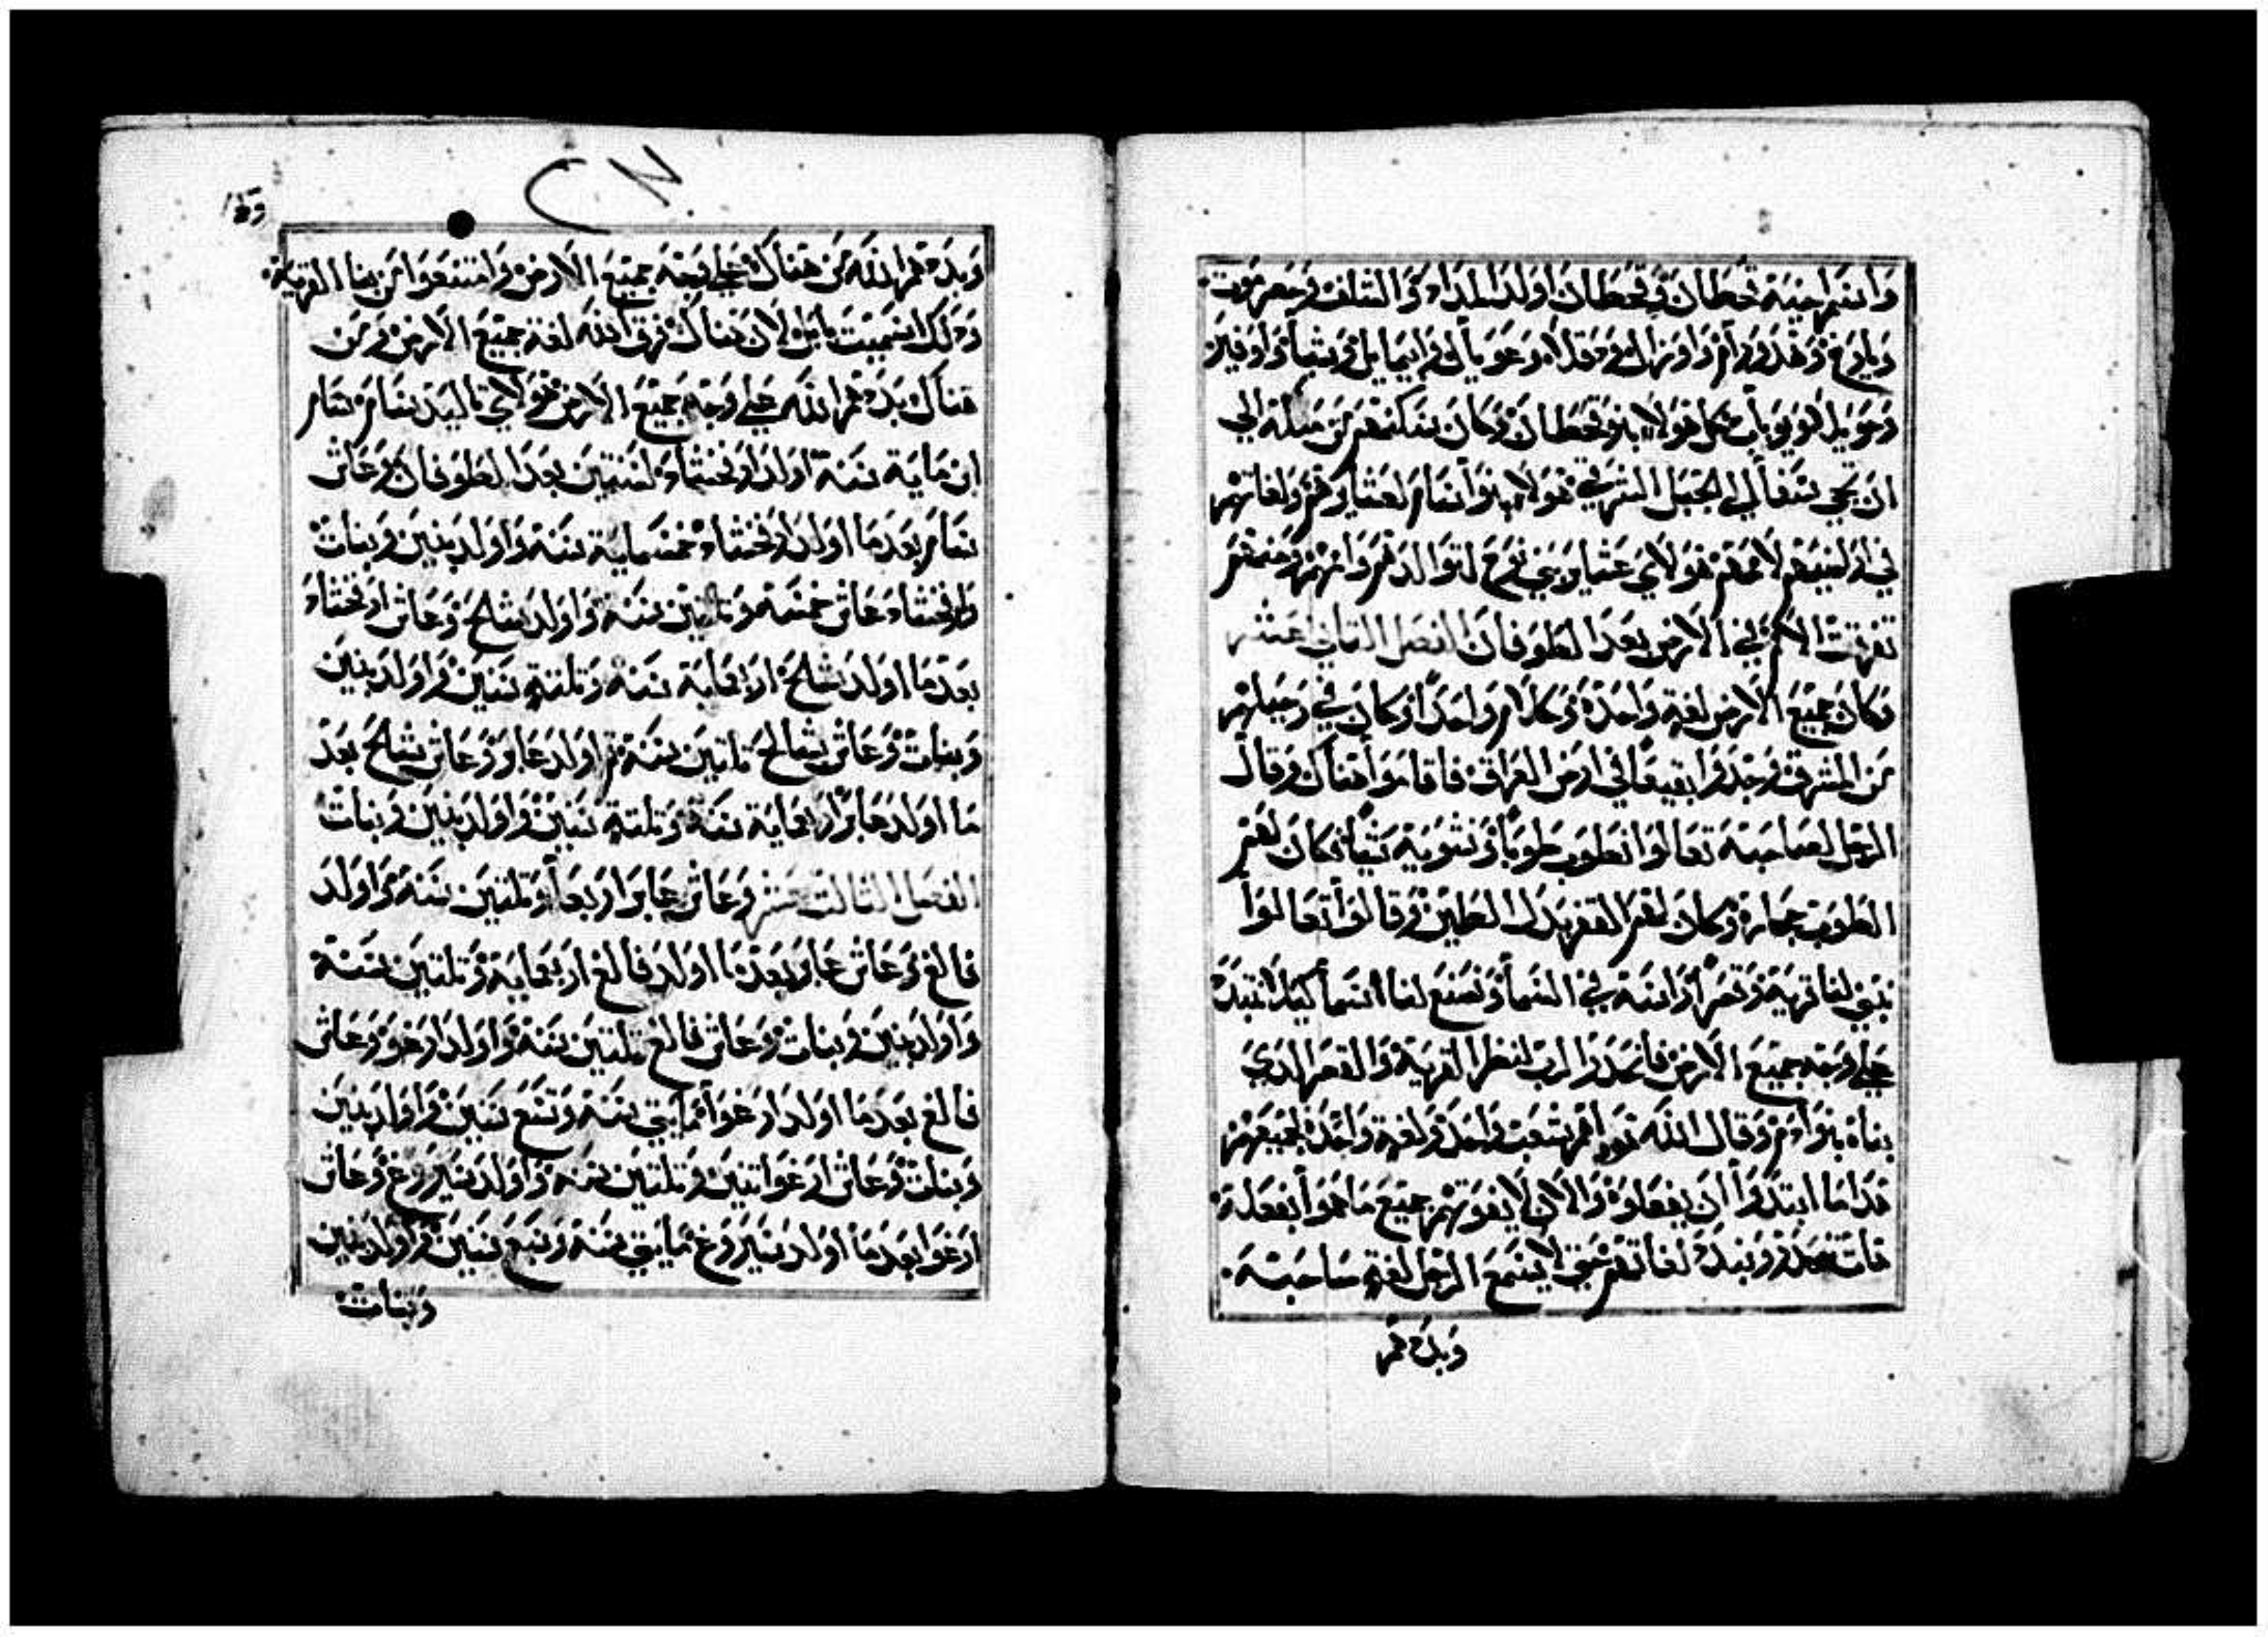 واسم اخيه قحطان وقحطان اولد المداد والشالف وحضرموت
ويارخ وهدورام واوزال ودقلاه وعوبال وابيمايل وشبا واوفير
وحويلا ويوباب كل هولاء بنو قحطان وكان سكنهم من مسله الي
ان تجي سفال الجبل الشرقي هولاء بنوا سام لعشايرهم ولغاتهم
في اراضيهم لاممهم هولاي عشاير بني نوح لتوالدهم واممهم ومنهم
تفرقت الامم في الارض بعد الطوفان الفصل التاني عشر
وكان جميع الارض لغة واحدة وكلام واحدا وكان في رحيلهم
من المشرق وجدوا بقيعا في ارض العراق فاقاموا هناك وقال
الرجل لصاحبه تعالوا نطوب طوبا ونشويه شيا فكان لهم
الطوب حجارة وكان لهم القفر بدل الطين وقالوا تعالوا
نبني لنا قرية وقصرا راسه في السما ونصنع لنا اسما كيلا نتبدد
علي وجه جميع الارض فانحدر الرب لينظر القرية والقصر الدي
بناه بنوا ادم وقال الله هودا هم شعب واحد ولغة واحدة لجميعهم
فدا ما ابتدوا ان يفعلوه والان لا يفوتهم جميع ما هموا بفعله
فات نحدر ونبدد لغاتهم حتي لا يسمع الرجل لغة صاحبه
وبددهم
وبددهم الله من هناك علي وجه جميع الارض وامتنعوا من بنا القرية
ودلك اسميت بابل لان هناك فرق الله لغة جميع الارض ومن
هناك بددهم الله علي وجه جميع الارض هولاي تاليد سام سام
ابن ماية سنة اولد ارفخشاد لسنتين بعد الطوفان وعاش
سام بعد ما اولد ارفخشاد خمسماية سنة واولد بنين وبنات
وارفخشاد عاش خمسة وتلتين سنة واولد شالح وعاش ارفخشاد
بعد ما اولد شالح اربعماية سنة وتلتة سنين واولد بنين
وبنات وعاش شالح تلتين سنة تم اولد عابر وعاش شالح بعد
ما اولد عابر اربعماية سنة وتلتة سنين واولد بنين وبنات
الفصل التالت عشر وعاش عابر اربعا وتلتين سنة واولد
فالغ وعاش عابر بعد ما اولد فالغ اربعماية وتلتين سنة
واولد بنين وبنات وعاش فالغ تلتين سنة واولد ارغو وعاش
فالغ بعد ما اولد ارغوا مايتي سنة وتسع سنين واولد بنين
وبنات وعاش ارغوا تنين وتلتين سنة واولد سيروغ وعاش
ارغوا بعد ما اولد سيروغ مايتي سنة وسبع سنين واولد بنين
وبنات